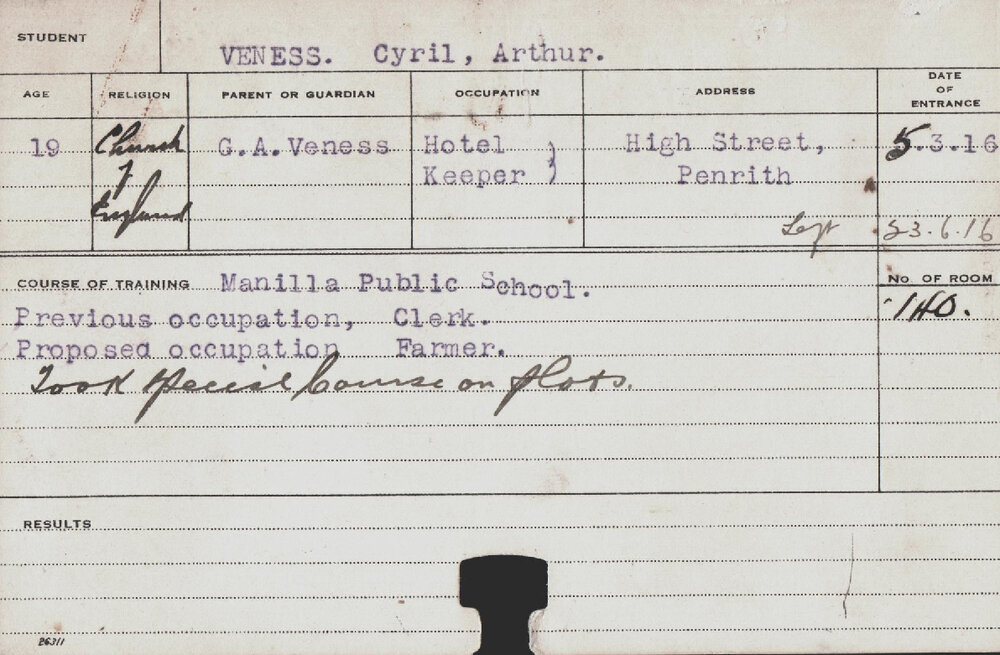 STUDENT
VENESS. Cyril, Arthur.
AGE RELIGION PARENT OR GUARDIAN OCCUPATION ADDRESS DATE OF ENTRANCE
19 Church G.A.Veness Hotel } High Street, 5.3.16
of Keeper } Penrith
England
Left 23.6.16
COURSE OF TRAINING Manilla Public School. No. OF ROOM
Previous occupation, Clerk. 140.
Proposed occupation Farmer.
Took special Course on plots.
RESULTS
26311